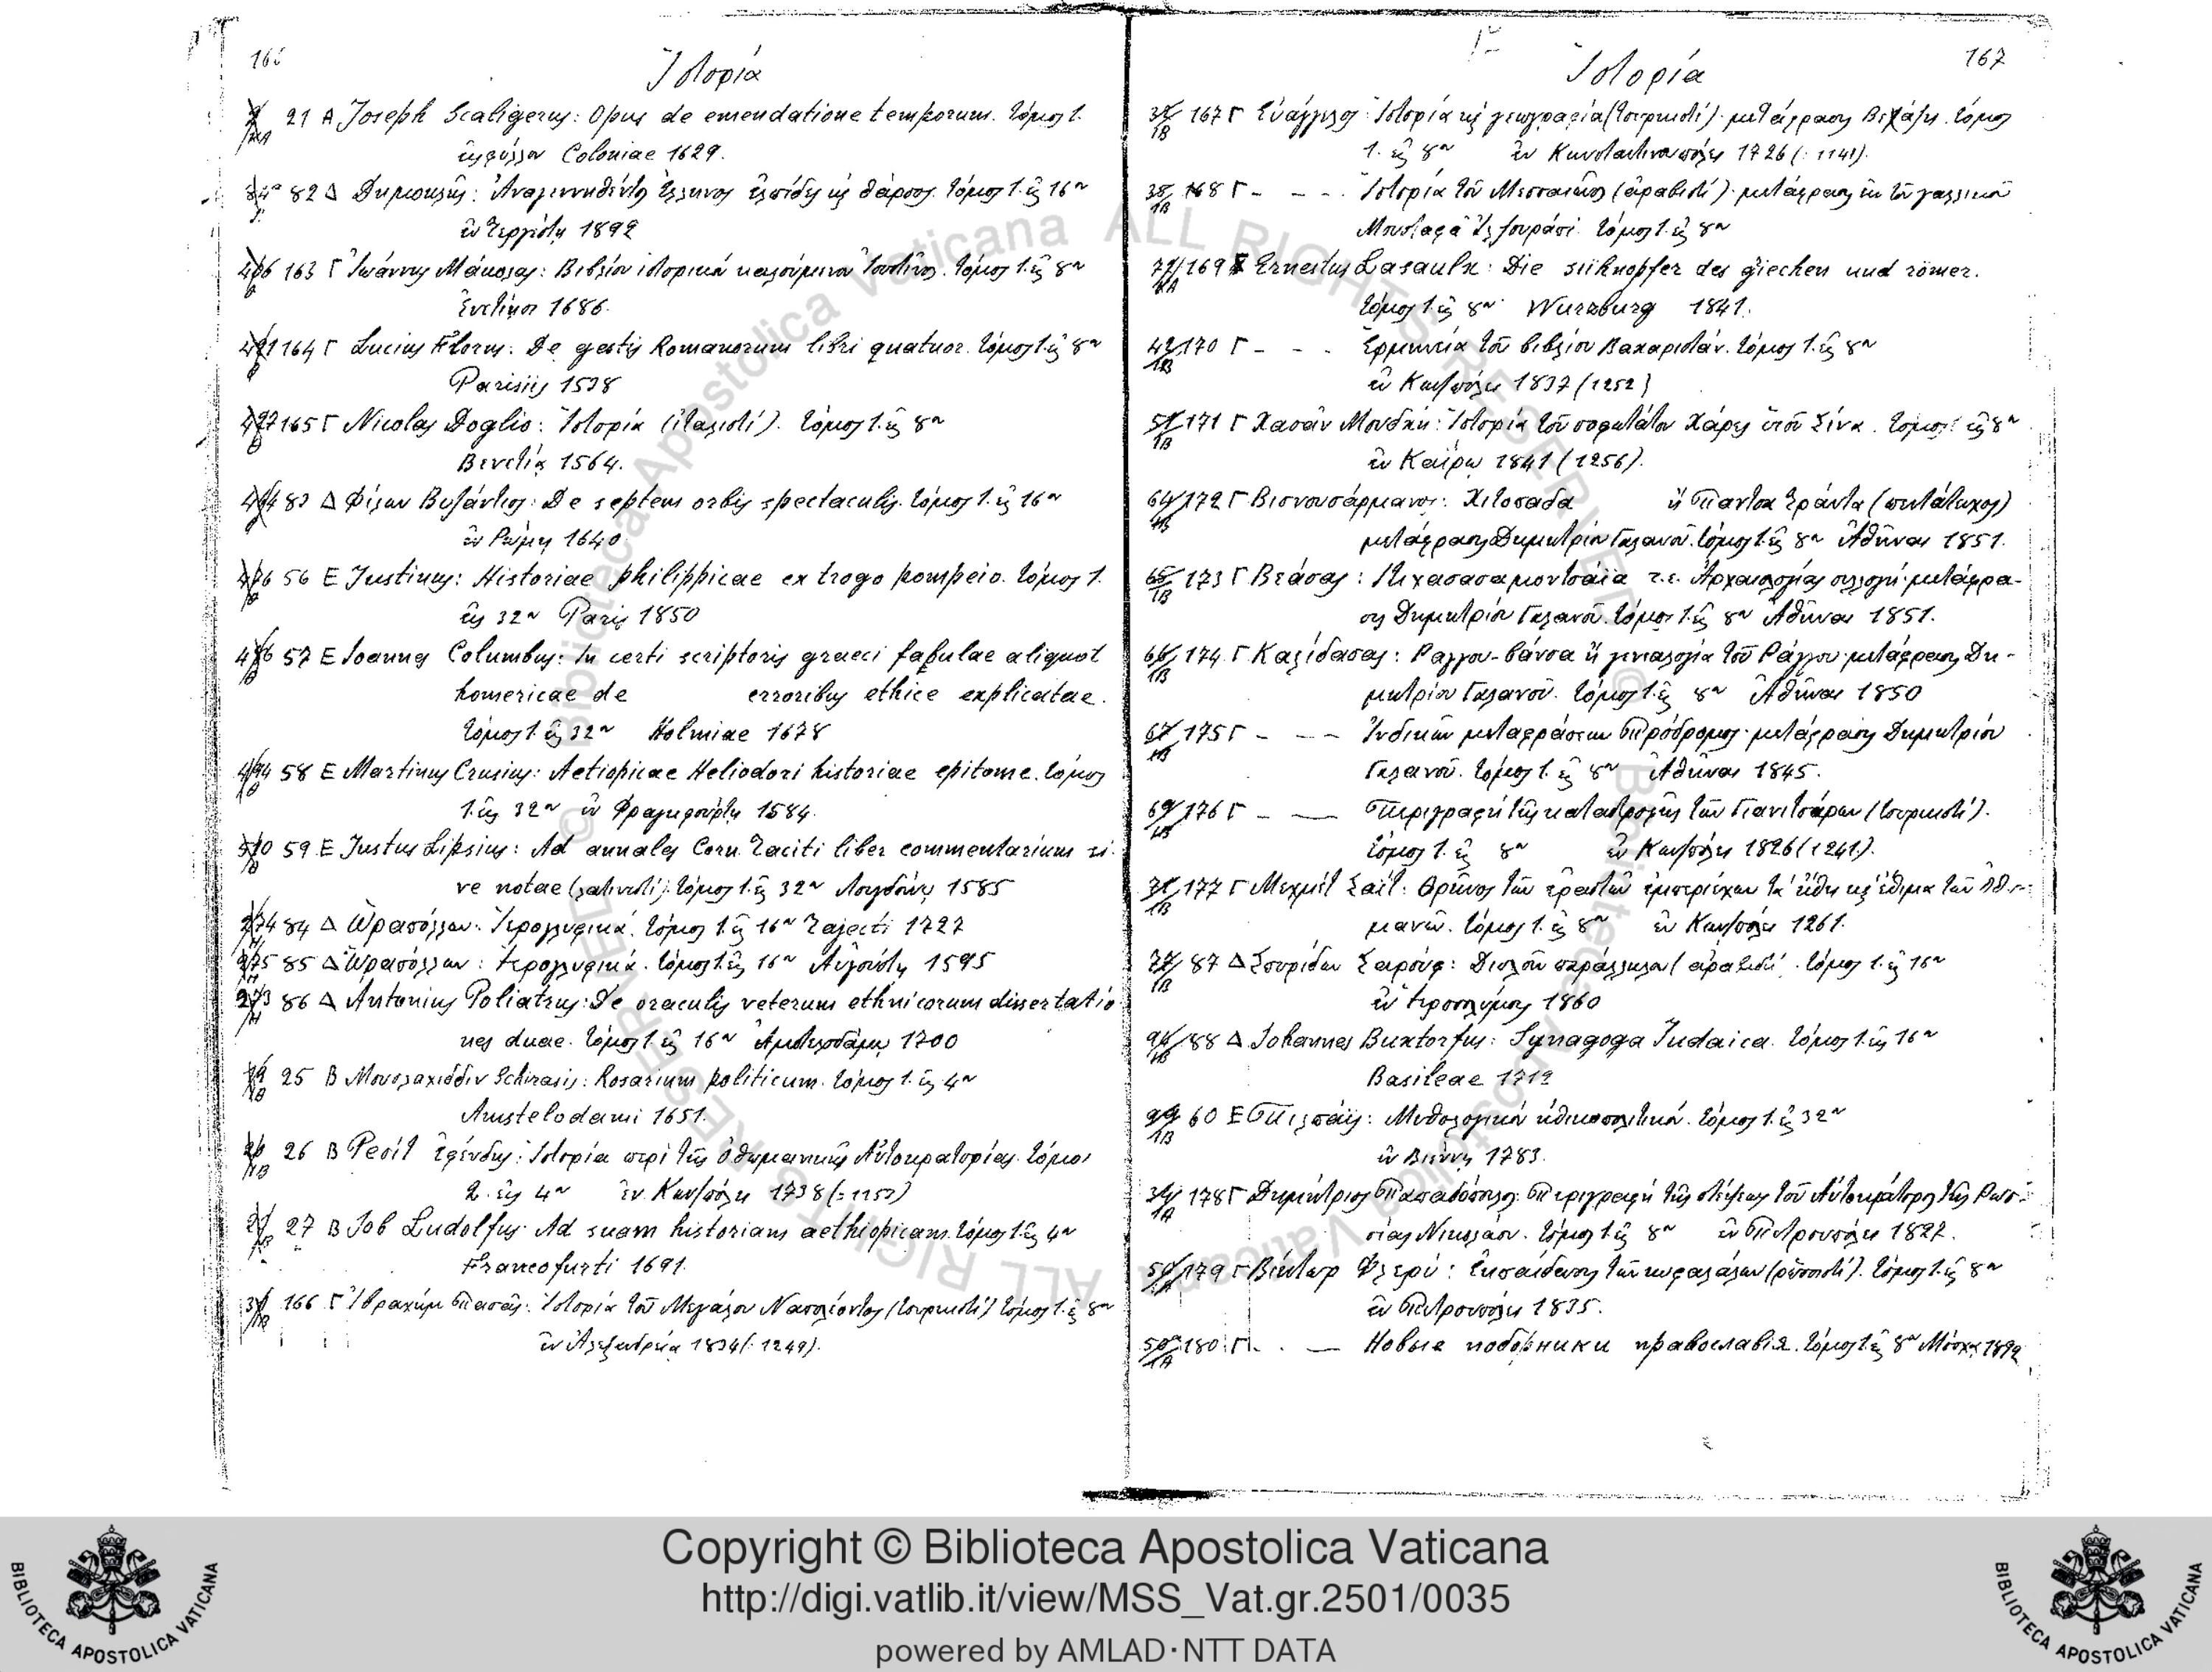 166
Ἱστορία
21 Α Joseph Scaligerus: Opus de emendatione temporum. τόμος 1.
εἰς φύλλον Coloniae 1629.
82 Δ Δημοκλῆς: Ἀναγεννηθέντος Ἕλληνος ἐλπίδες καὶ θάρσος. τόμος 1. εἰς 16ον
ἐν Τεργέστῃ 1892
163 Γ Ἰωάννης Μάκολας: Βιβλίον ἱστορικὸν καλούμενον Ἰουστῖνος. τόμος 1. εἰς 8ον
Ἐνετίῃσι 1686.
164 Γ Lucius Florus: De gestis Romanorum libri quatuor. τόμος 1. εἰς 8ον
Parisiis 1538
165 Γ Nicolas Doglio: Ἱστορία (ἰταλιστί). τόμος 1. εἰς 8ον
Βενετίᾳ 1564.
83 Δ Φίλων Βυζάντιος: De septem orbis spectaculis. τόμος 1. εἰς 16ον
ἐν Ρώμῃ 1640
56 Ε Justinus: Historiae philippicae ex trogo pompeio. τόμος 1.
εἰς 32ον Paris 1850
57 Ε Joannes Columbus: In certi scriptoris graeci fabulae aliquot
homericae de erroribus ethice explicatae.
τόμος 1. εἰς 32ον Holmiae 1678
58 Ε Martinus Crusius: Aetiopicae Heliodori historiae epitome. τόμος
1. εἰς 32ον ἐν Φραγκφούρτῃ 1584.
59 Ε Justus Lipsius: Ad annales Corn. Taciti liber commentarium si-
ve notae (λατινιστί). τόμος 1. εἰς 32ον Λουγδούνῳ 1585
84 Δ Ὡραπόλλων: Ἱερογλυφικά. τόμος 1. εἰς 16ον Trajecti 1727
85 Δ Ὡραπόλλων: Ἱερογλυφικά. τόμος 1. εἰς 16ον Αὐγούστῃ 1595
86 Δ Antonius Poliatrus: De oraculis veterum ethnicorum dissertatio
nes duae. τόμος 1. εἰς 16ον Ἀμστελοδάμῳ 1700
25 Β Μουσλαχιδδιν Schirasis: Rosarium politicum. τόμος 1. εἰς 4ον
Amstelodami 1651.
26 Β Ρεσίτ Ἐφένδης: Ἱστορία περὶ τῆς Ὀθωμανικῆς Αὐτοκρατορίας. τόμοι
2. εἰς 4ον ἐν Κων/πόλει 1738 (=1153)
27 Β Job Ludolfus: Ad suam historiam aethiopicam. τόμος 1. εἰς 4ον
Francofurti 1691.
166 Γ Ἰβραχὴμ πασᾶς: Ἱστορία τοῦ Μεγάλου Ναπολέοντος (τουρκιστί) τόμος 1. εἰς 8ον
ἐν Ἀλεξανδρείᾳ 1834 (: 1249).
167
Ἱστορία
167 Γ Εὐάγγελος: Ἱστορία καὶ γεωγραφία (τουρκιστί). μετάφρασις τόμος
1. εἰς 8ον ἐν Κωνσταντινουπόλει 1726 (: 1141).
168 Γ - - - Ἱστορία τοῦ Μεσσαιῶνος (ἀραβιστί). μετάφρασις ἐκ τοῦ γαλλικοῦ
Μουσταφᾶ τόμος 1. εἰς 8ον
169 Ernestus Lasaulx: Die sühnopfer des griechen und römer.
τόμος 1. εἰς 8ον Wurzburg 1841.
170 Γ - - - Ἑρμηνεία τοῦ βιβλίου Βαχαριστάν. τόμος 1. εἰς 8ον
ἐν Κων/πόλει 1837 (1252)
171 Γ Χασὰν Μουδχή: Ἱστορία τοῦ σοφωτάτου Χάρες Σίνα. τόμος 1. εἰς 8ον
ἐν Καΐρῳ 1841 (1256).
172 Γ Βισνουσάρμανος: Χιτοπαδασσα ἢ Πάντσα Τράντα (πεντάτευχος)
μετάφρασις Δημητρίου Γαλανοῦ. τόμος 1. εἰς 8ον Ἀθῆναι 1851.
173 Γ Βεάσας: τ.ε. Ἀρχαιολογίας συλλογή· μετάφρα-
σις Δημητρίου Γαλανοῦ. τόμος 1. εἰς 8ον Ἀθῆναι 1851.
174 Γ Καλίδασας: Ραγγου-βάνσα ἢ γενεαλογία τοῦ Ράγγου· μετάφρασις Δη-
μητρίου Γαλανοῦ. τόμος 1. εἰς 8ον Ἀθῆναι 1850
175 Γ - - - Ἰνδικῶν μεταφράσεων πρόδρομος· μετάφρασις Δημητρίου
Γαλανοῦ. τόμος 1. εἰς 8ον Ἀθῆναι 1845.
176 Γ - — Περιγραφὴ τῆς καταστροφῆς τῶν Γιανιτσάρων (τουρκιστί).
τόμος 1. εἰς 8ον ἐν Κων/πόλει 1826 (1241).
177 Γ Μεχμὲτ Σαΐτ: Θρῆνος τῶν ἐραστῶν ἐμπεριέχων τὰ ἤθη καὶ ἔθιμα τῶν Ὀθω-
μανῶν. τόμος 1. εἰς 8ον ἐν Κων/πόλει 1261.
87 Δ Σπυρίδων Σαρούφ: παράλληλον (ἀραβιστί). τόμος 1. εἰς 16ον
ἐν Ἱεροσολύμοις 1860
88 Δ Johannes Buxtorfus: Synagoga Judaica. τόμος 1. εἰς 16ον
Basileae 1712
60 Ε Πιλπάϊς: Μυθολογικὸν ἠθικοπολιτικόν. τόμος 1. εἰς 32ον
ἐν Βιέννῃ 1783.
178 Γ Δημήτριος Παπαδόπουλος: Περιγραφὴ τῆς στέψεως τοῦ Αὐτοκράτορος τῆς Ρωσ-
σίας Νικολάου. τόμος 1. εἰς 8ον ἐν Πετρουπόλει 1827.
179 Γ Βίκτωρ Φλερύ: Ἐκπαίδευσις τῶν κωφαλάλων (ρωσσιστί). τόμος 1. εἰς 8ον
ἐν Πετρουπόλει 1835.
180 Γ - — Новые православія. τόμος 1. εἰς 8ον Μόσχᾳ 1892
Copyright © Biblioteca Apostolica Vaticana
http://digi.vatlib.it/view/MSS_Vat.gr.2501/0035
powered by AMLAD·NTT DATA
BIBLIOTECA APOSTOLICA VATICANA
BIBLIOTECA APOSTOLICA VATICANA